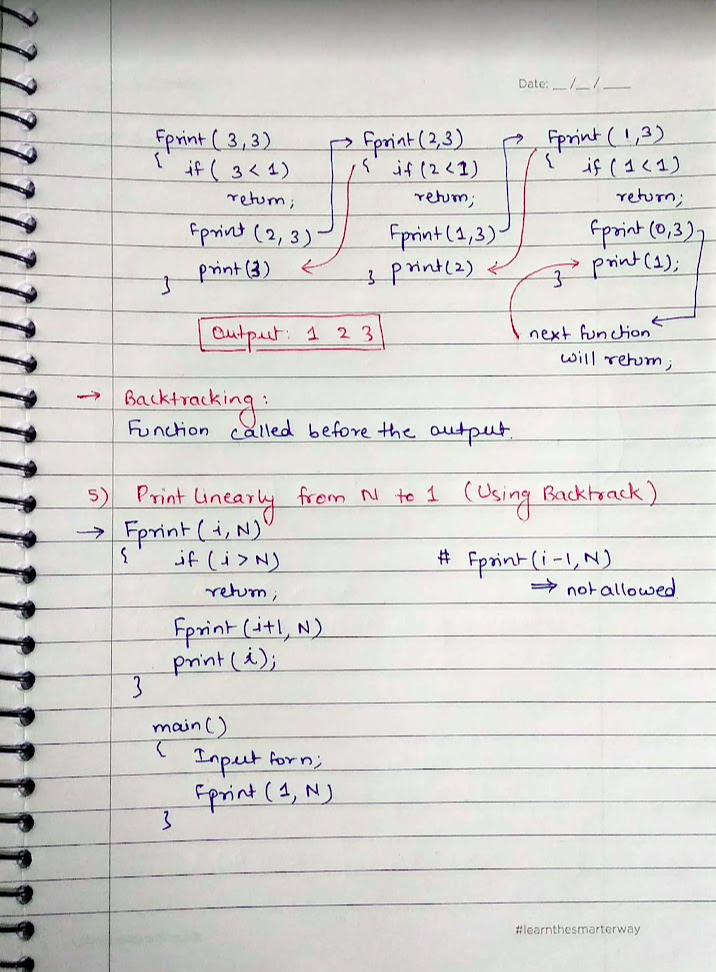 Date: __/__/___
Fprint(3,3)
{ if( 3<1)
return;
Fprint(2,3)
print(3)
}
Fprint(2,3)
{ if(2<1)
return;
Fprint(1,3)
} print(2)
Fprint(1,3)
{ if(1<1)
return;
fprint(0,3)
} print(1);
next function
will return;
Output: 1 2 3
→ Backtracking:
Function called before the output.
5) Print linearly from N to 1 (Using Backtrack)
→ Fprint(i,N)
{ if(i>N)
return;
Fprint(i+1,N)
print(i);
}
# Fprint(i-1,N)
⇒ not allowed
main()
{ Input for n;
Fprint(1,N)
}
#learnthesmarterway